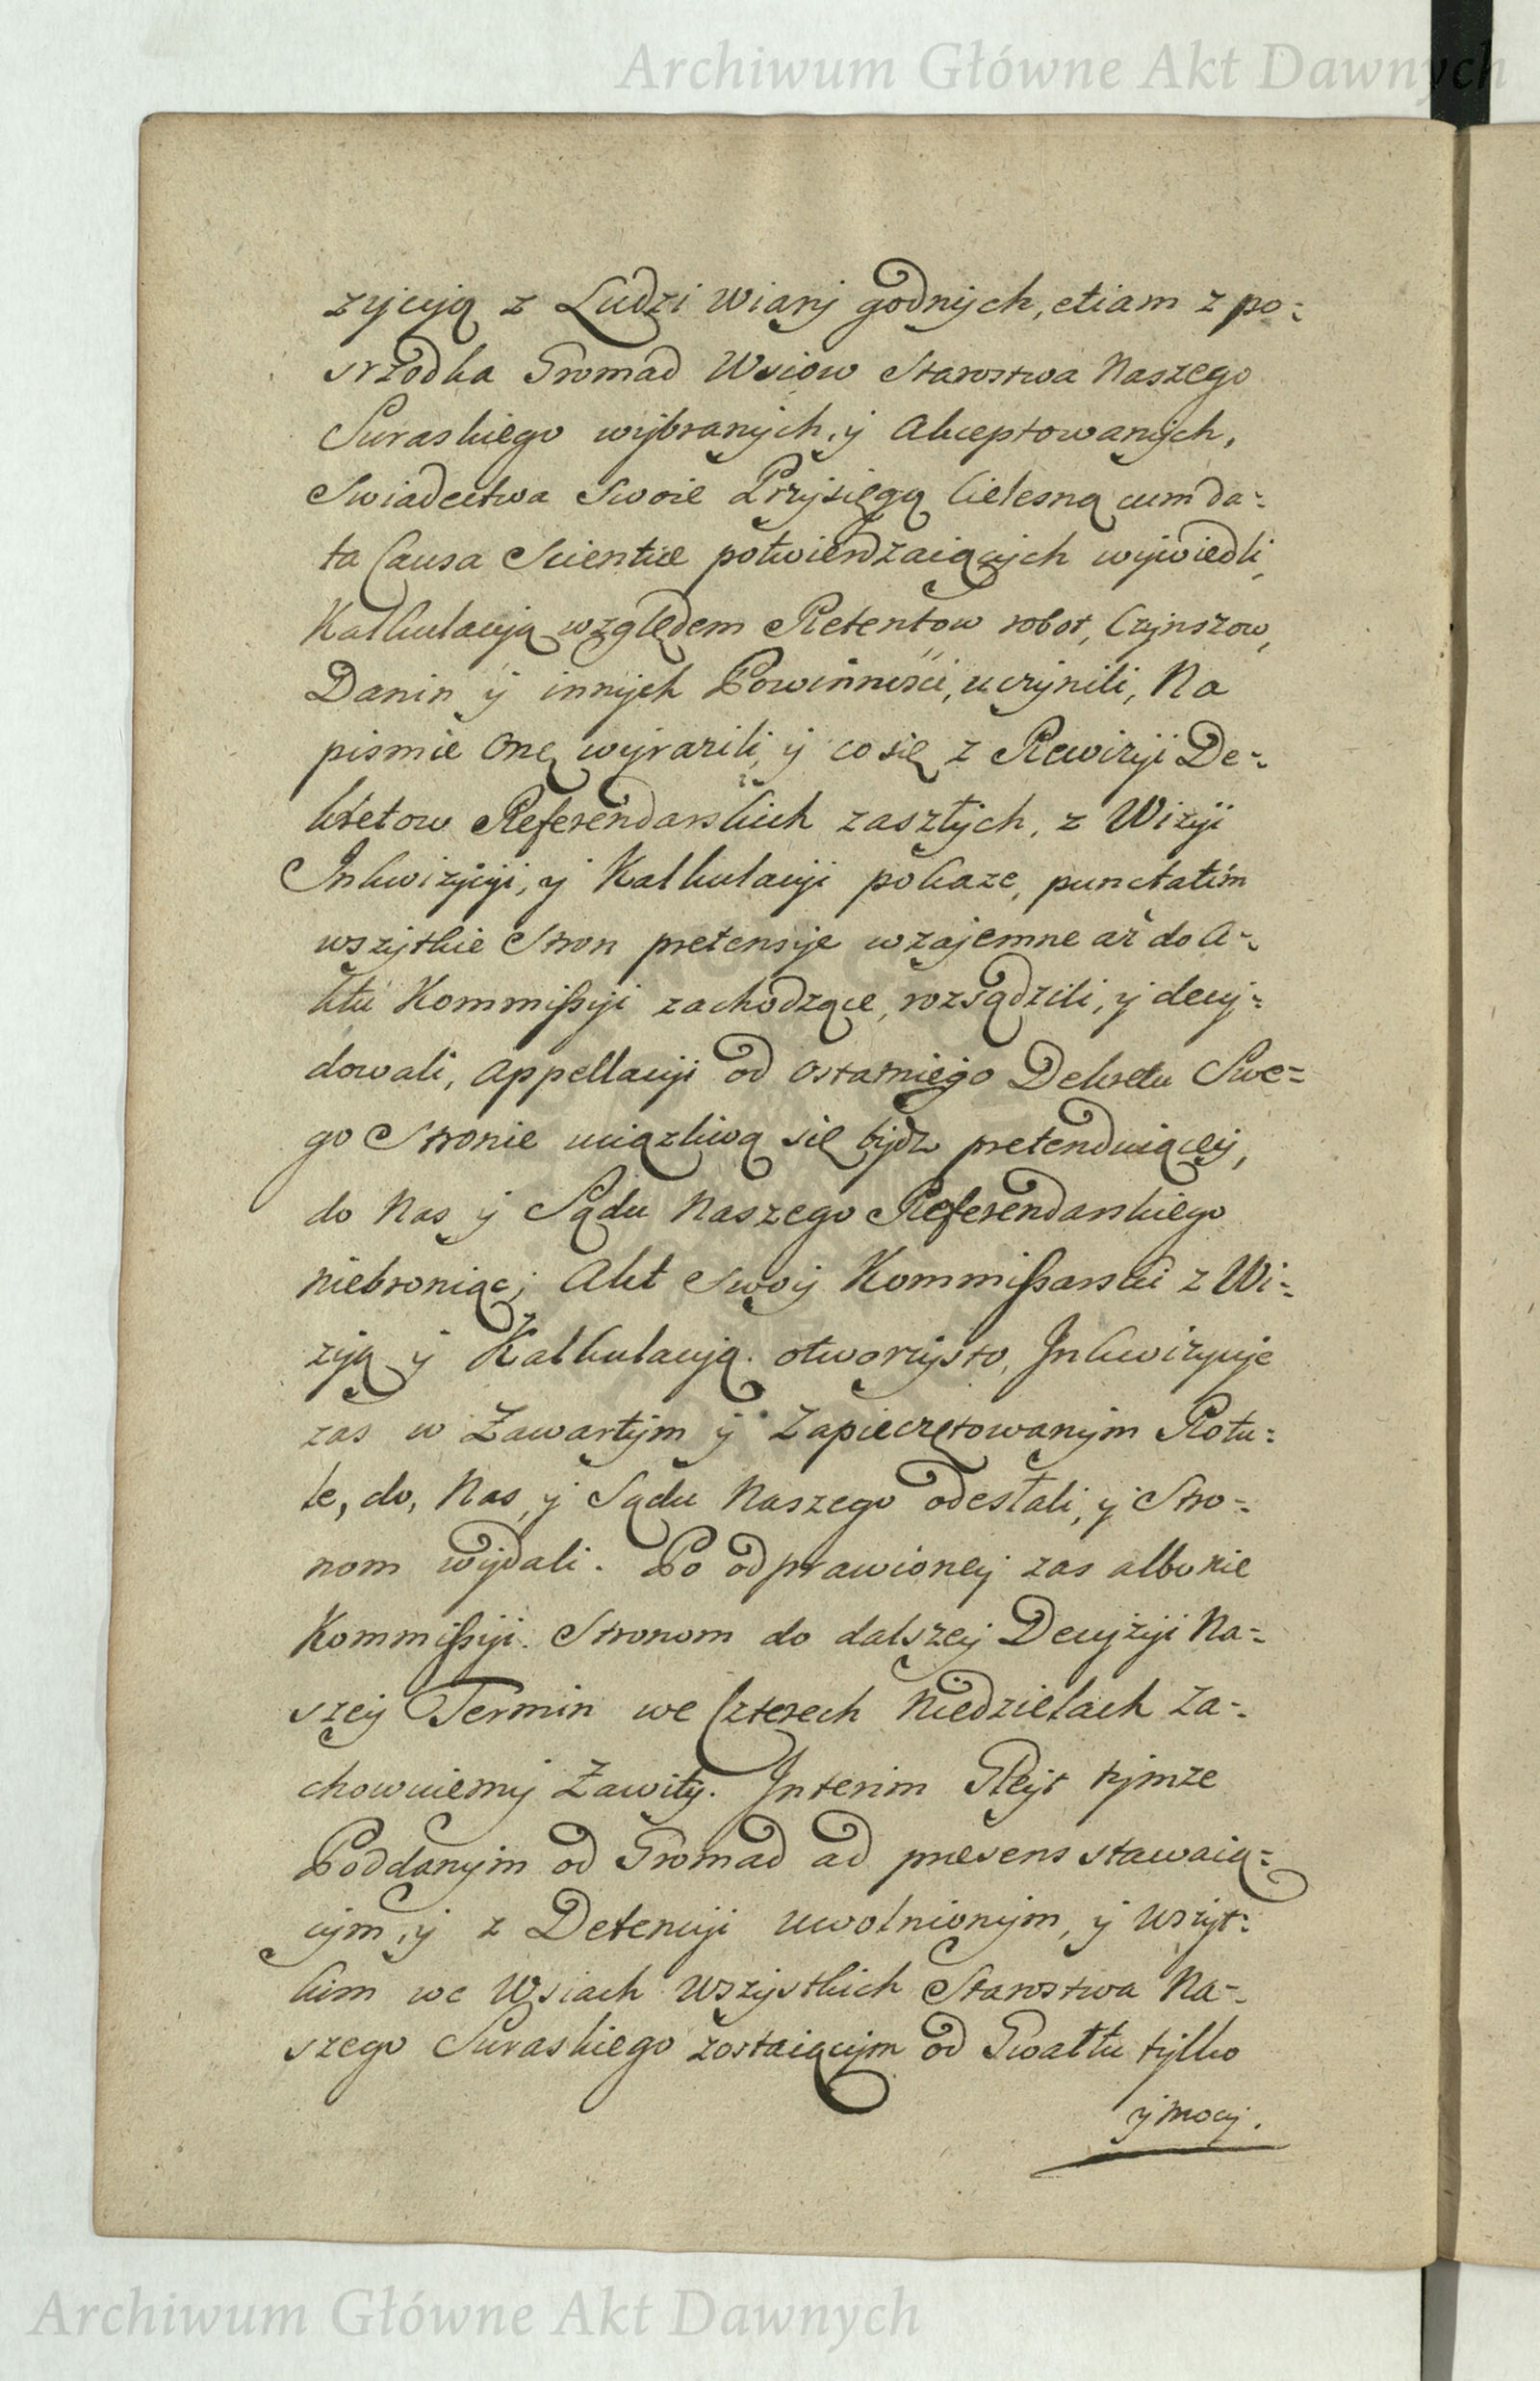 Archiwum Główne Akt Dawnych
zycyją z Ludzi wiary godnych, etiam z po-
srzodka Gromad Wsiow Starostwa Naszego
Suraskiego wybranych, y Akceptowanych,
Swiadectwa Swoie Przysięgą Cielesną cum da-
ta Causa Scientiæ potwierdzaiących wywiedli,
Kalkulacyją względem Retentow robot, Czynszow,
Danin y innych Powinności, uczynili, Na
pismie Onę wyrazili, y co się z Rewizyi De-
kretow Referendarskich zaszłych, z Wizyi
Inkwizycyi, y Kalkulacyi pokaze, punctatim
wszytkie Stron pretensye wzajemne aż do A-
ktu Kommissyi zachodzące, rozsądzili, y decy-
dowali, Appellacyi od Ostatniego Dekretu Swe-
go Stronie uciązliwą się bydź pretenduiącey,
do Nas y Sądu Naszego Referendarskiego
niebroniąc; Akt Swoy Kommissarski z Wi-
zyą y Kalkulacyją. otworzysto, Inkwizycyje
zas w Zawartym y Zapieczętowanym Rotu-
le, do, Nas, y Sądu Naszego odesłali, y Stro-
nom wydali. Po odprawioney zas albo nie
Kommissyi. Stronom do dalszey Decyzyi Na-
szey Termin we Czterech Niedzielach za-
chowuiemy Zawity. Interim Gleyt tymze
Poddanym od Gromad ad præsens stawaią-
cym, y z Detencyi uwolnionym, y wszyt-
kim we Wsiach wszystkich Starostwa Na-
szego Suraskiego zostaiącym od Gwałtu tylko
y mocy.
Archiwum Główne Akt Dawnych